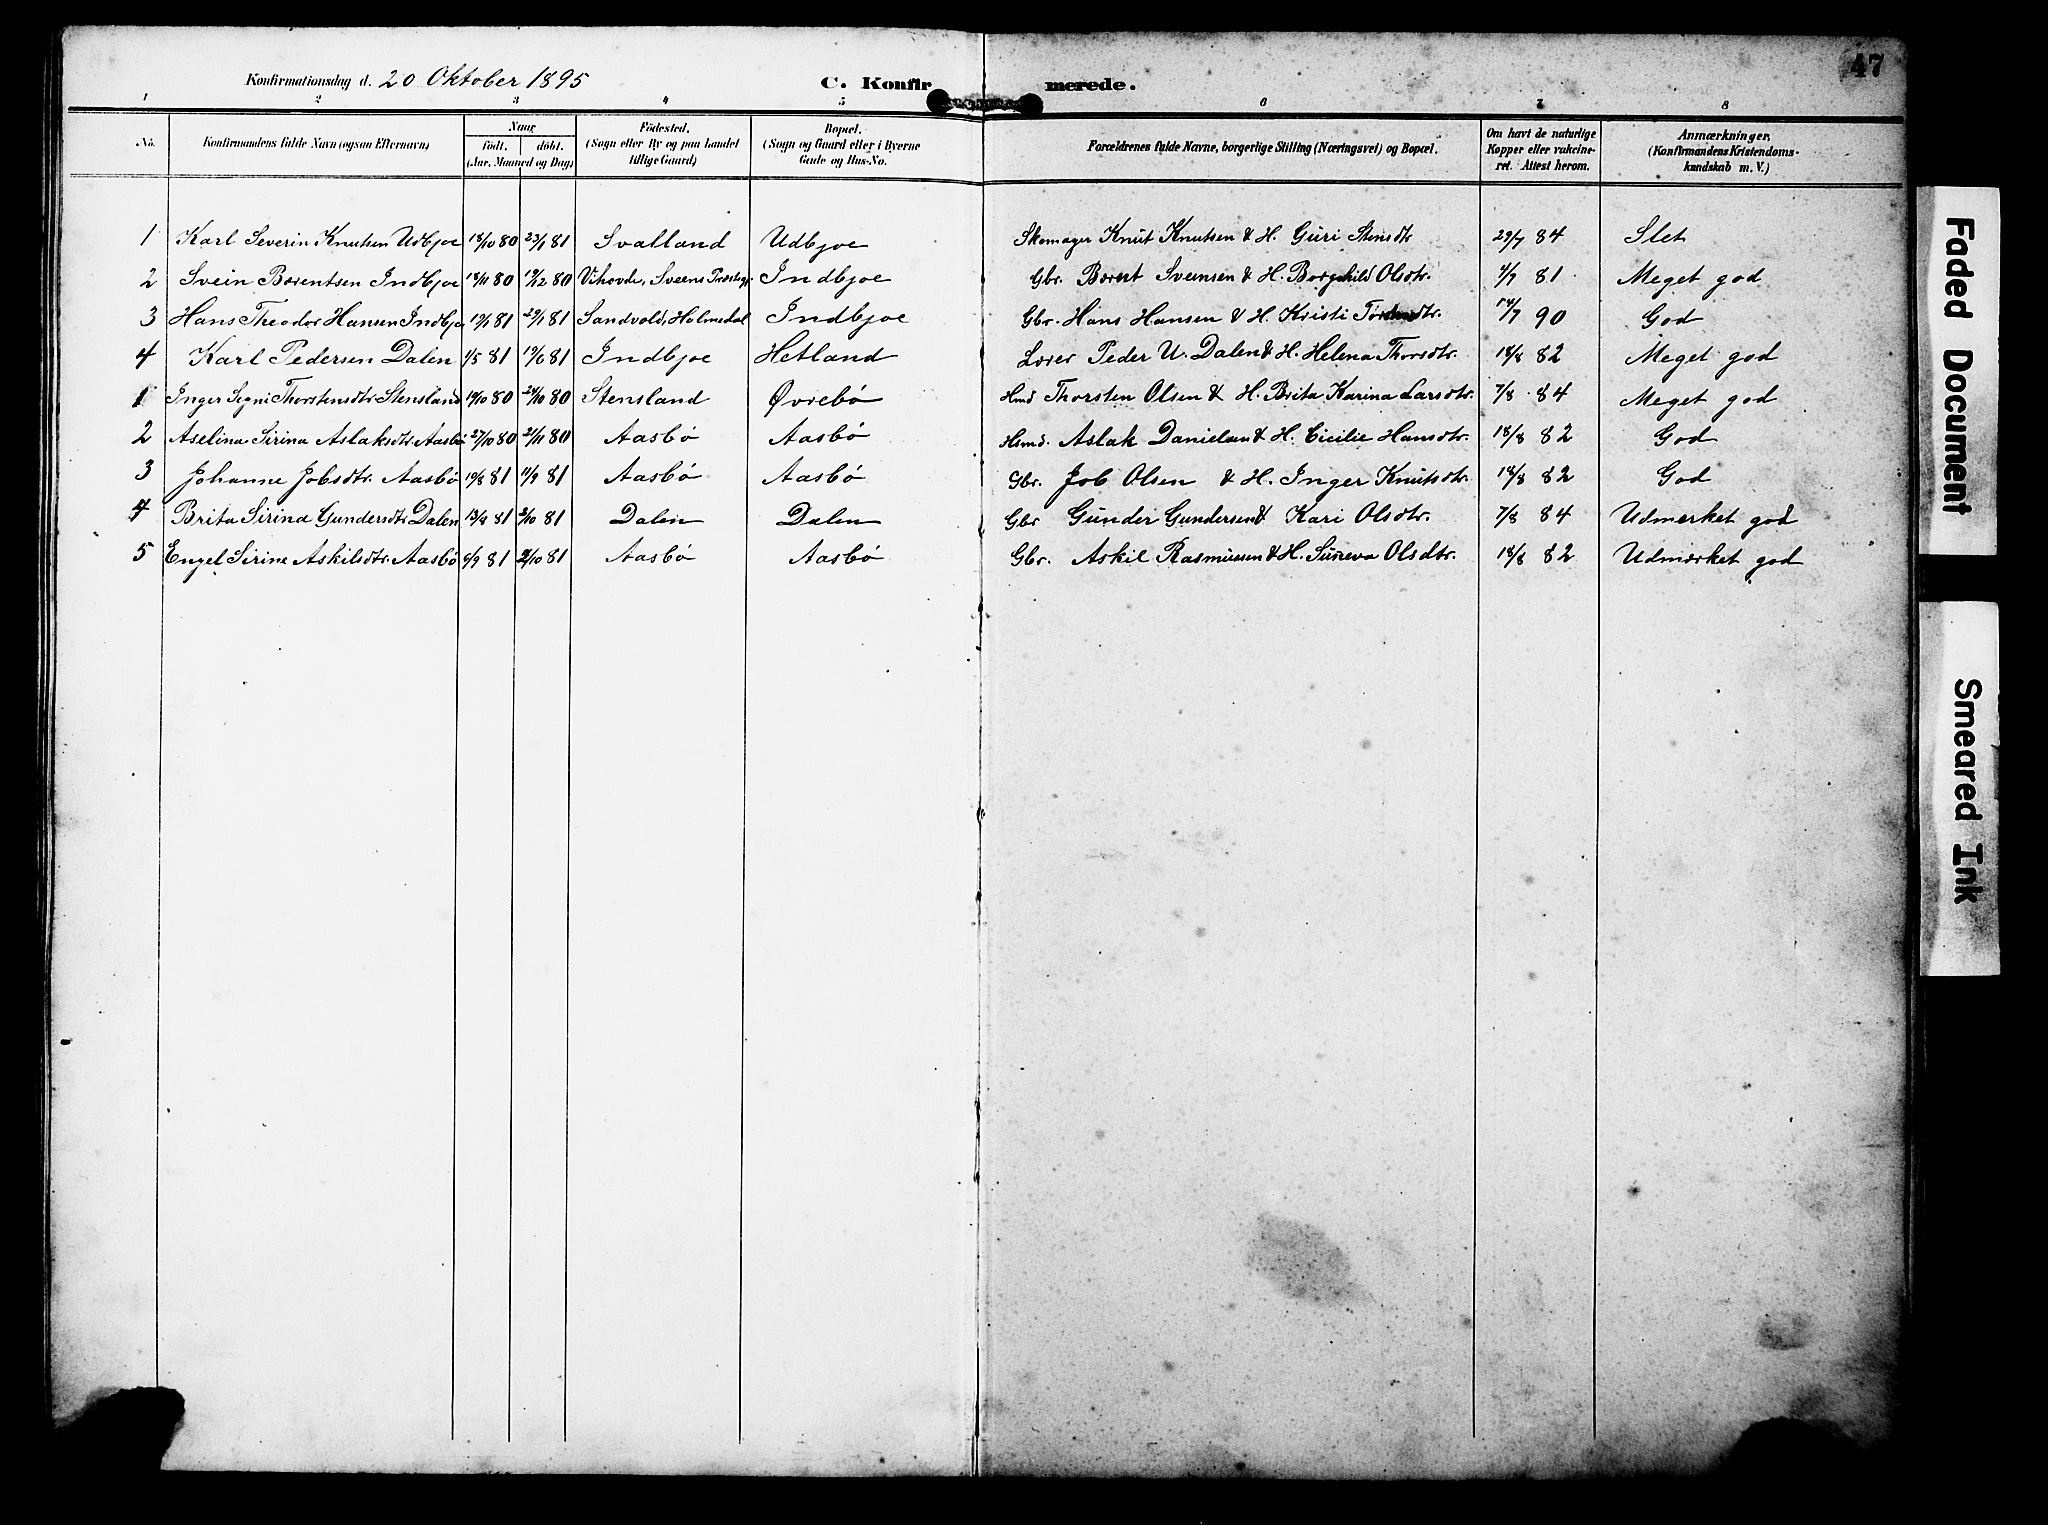 Konfirmationsdag d. 20 Oktober 1895 C. Konfirmerede. 47
1 2 3 4 5 6 7 8
No. Konfirmandens fulde Navn (ogsaa Efternavn) Naar födt. döbt. (Aar, Maaned og Dag) Födested. (Sogn eller By og paa Landet tillige Gaard) Bopæl. (Sogn og Gaard eller i Byerne Gade og Hus-No. Forældrenes fulde Navne, borgerlige Stilling (Næringsvei) og Bopæl. Om havt de naturlige Kopper eller vakcineret. Attest herom. Anmærkninger. (Konfirmandens Kristendomskundskab m. V.)
1 Karl Severin Knutsen Udbjoe 18/10 80 23/1 81 Svalland Udbjoe Skomager Knut Knutsen & H. Guri Stensdtr 29/7 84 Slet
2 Svein Børentsen Indbjoe 18/11 80 19/12 80 Vihovde, Sveens Indbjoe Gbr. Børent Sveinsen & H. Borghild Olsdtr. 4/7 81 Meget god
3 Hans Theodor Hansen Indbjoe 81 29/1 81 Sandvold, Holmedal Indbjoe Gbr. Hans Hansen & H. Kristi 90 God
4 Karl Pedersen Dalen 1/5 81 19/6 81 Indbjoe Hetland Lærer Peder U. Dalen & H. Helena Thorsdtr. 18/8 82 Meget god
1 Inger Signi Thorstensdtr Stensland 19/10 80 24/10 80 Stensland Øvrebø Hmd Thorsten Olsen & H. Brita Karina Larsdtr. 7/8 84 Meget god
2 Aselina Sirina Aslaksdtr Aasbø 27/10 80 21/11 80 Aasbø Aasbø Hsmd. Aslak Danielsen & H. Cicilie Hansdtr. 18/8 82 God
3 Johanne Jobsdtr. Aasbø 19/8 81 11/9 81 Aasbø Aasbø Gbr. Job Olsen & H. Inger Knutsdtr. 18/8 82 God
4 Brita Sirina Gundersdtr Dalen 13/8 81 2/10 81 Dalen Dalen Gbr Gunder Gundersen & Kari Olsdtr. 7/8 84 Udmerket god
5 Engel Sirine Askilsdtr. Aasbø 6/9 81 2/10 81 Aasbø Aasbø Gbr. Askil Rasmussen & H. Suneva Olsdtr. 18/8 82 Udmærket god
Faded Document
Smeared Ink